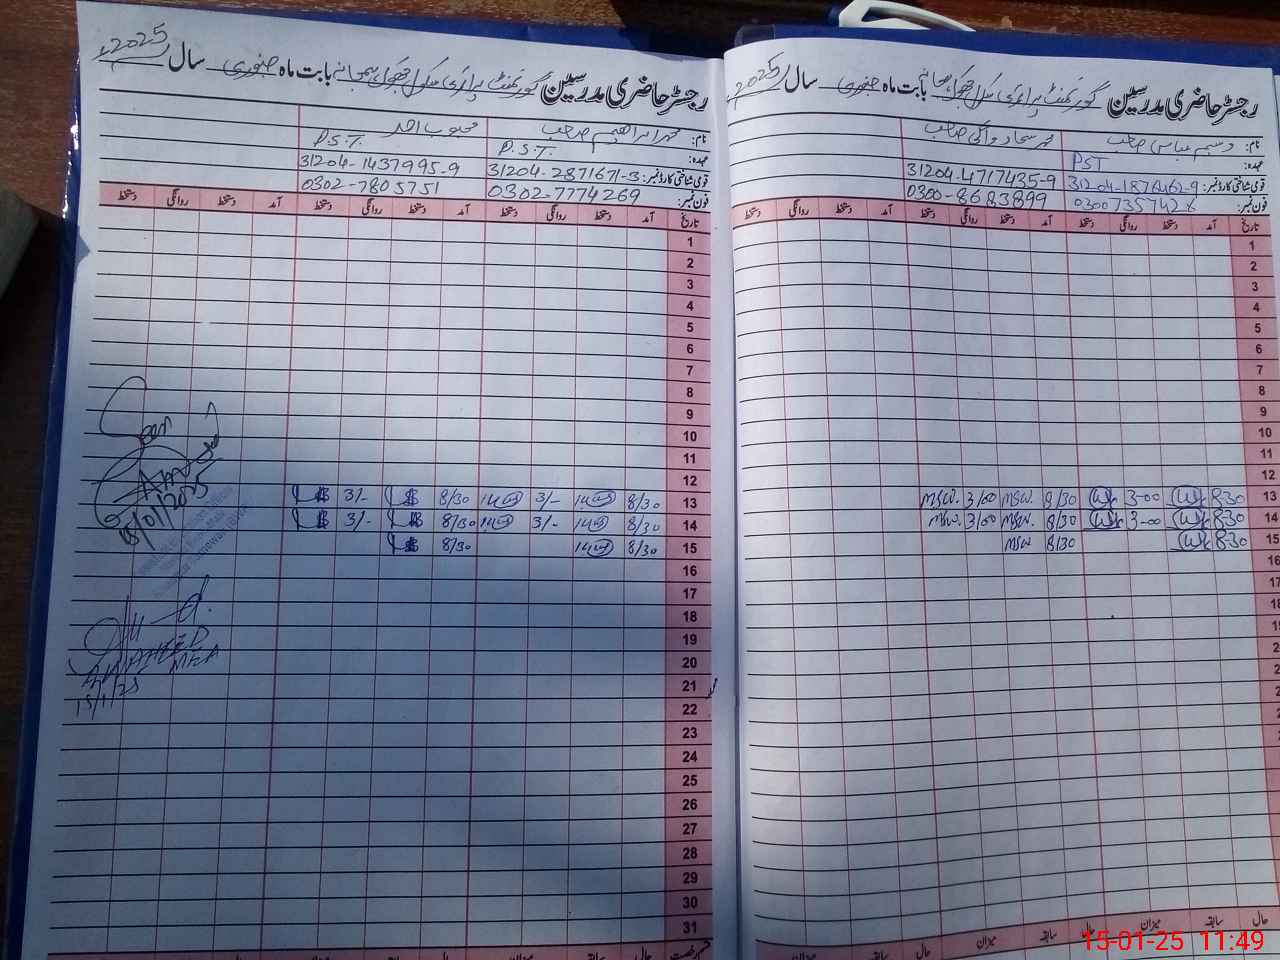 رجسٹر حاضری مدرسین گورنمنٹ پرائمری سکول بابت ماہ جنوری سال 2025ء
نام: محمد ابراہیم صاحب محبوب احمد
عہدہ: P.S.T. P.S.T.
قومی شناختی کارڈ نمبر: 31204-2871671-3 31204-1437995-9
فون نمبر: 0302-7774269 0302-7805751
تاریخ آمد دستخط روانگی دستخط آمد دستخط روانگی دستخط آمد دستخط روانگی دستخط
1
2
3
4
5
6
7
8
9
10
11
12
13 8/30 3/- 8/30 3/-
14 8/30 3/- 8/30 3/-
15 8/30 8/30
16
17
18
19
20
21
22
23
24
25
26
27
28
29
30
31
Seen
15/01/2025
MEA
15/1/25
رجسٹر حاضری مدرسین گورنمنٹ پرائمری سکول بابت ماہ جنوری سال 2025ء
نام: وسیم عباس صاحب محمد سجاد صاحب
عہدہ: PST
قومی شناختی کارڈ نمبر: 31204-1876462-9 31204-4717435-9
فون نمبر: 03007357426 0300-8683899
تاریخ آمد دستخط روانگی دستخط آمد دستخط روانگی دستخط آمد دستخط روانگی دستخط
1
2
3
4
5
6
7
8
9
10
11
12
13 8-30 3-00 8/30 MSW. 3/00 MSW.
14 8-30 3-00 8/30 MSW. 3/00 MSW.
15 8-30 8/30 MSW
16
17
18
حال سابقہ میزان حال سابقہ میزان
15-01-25 11:49